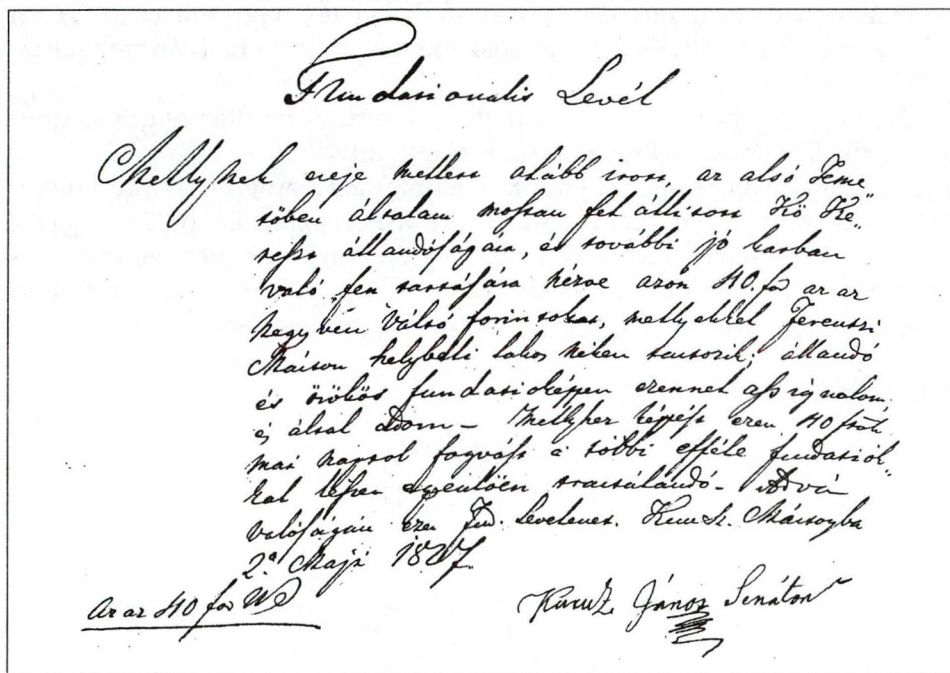 Fundasionalis Levél
Mellynek ereje mellett alább irott, az alsó Teme„
tőben általam mostan fel állitott Kő Ke„
resst állandóságára, és további jó karban
való fen tartására nézve azon 40. for az az
negyven Váltó forintokat, mellyekkel Ferentzi
Márton helybeli lakos nékem tartozik; állandó
és örökös fundatioképpen ezennel assignalom,
és által adom – Mellyhez képest ezen 40 frtot
mai naptol fogvást a többi efféle fundatiók„
kal lészen egyenlően tractálandó – Adván
valóságán ezen Fud. Levelemet. Kun Sz. Mártonyba
2ª Maji 1827.
az az 40 for
Kuruz János Senátor